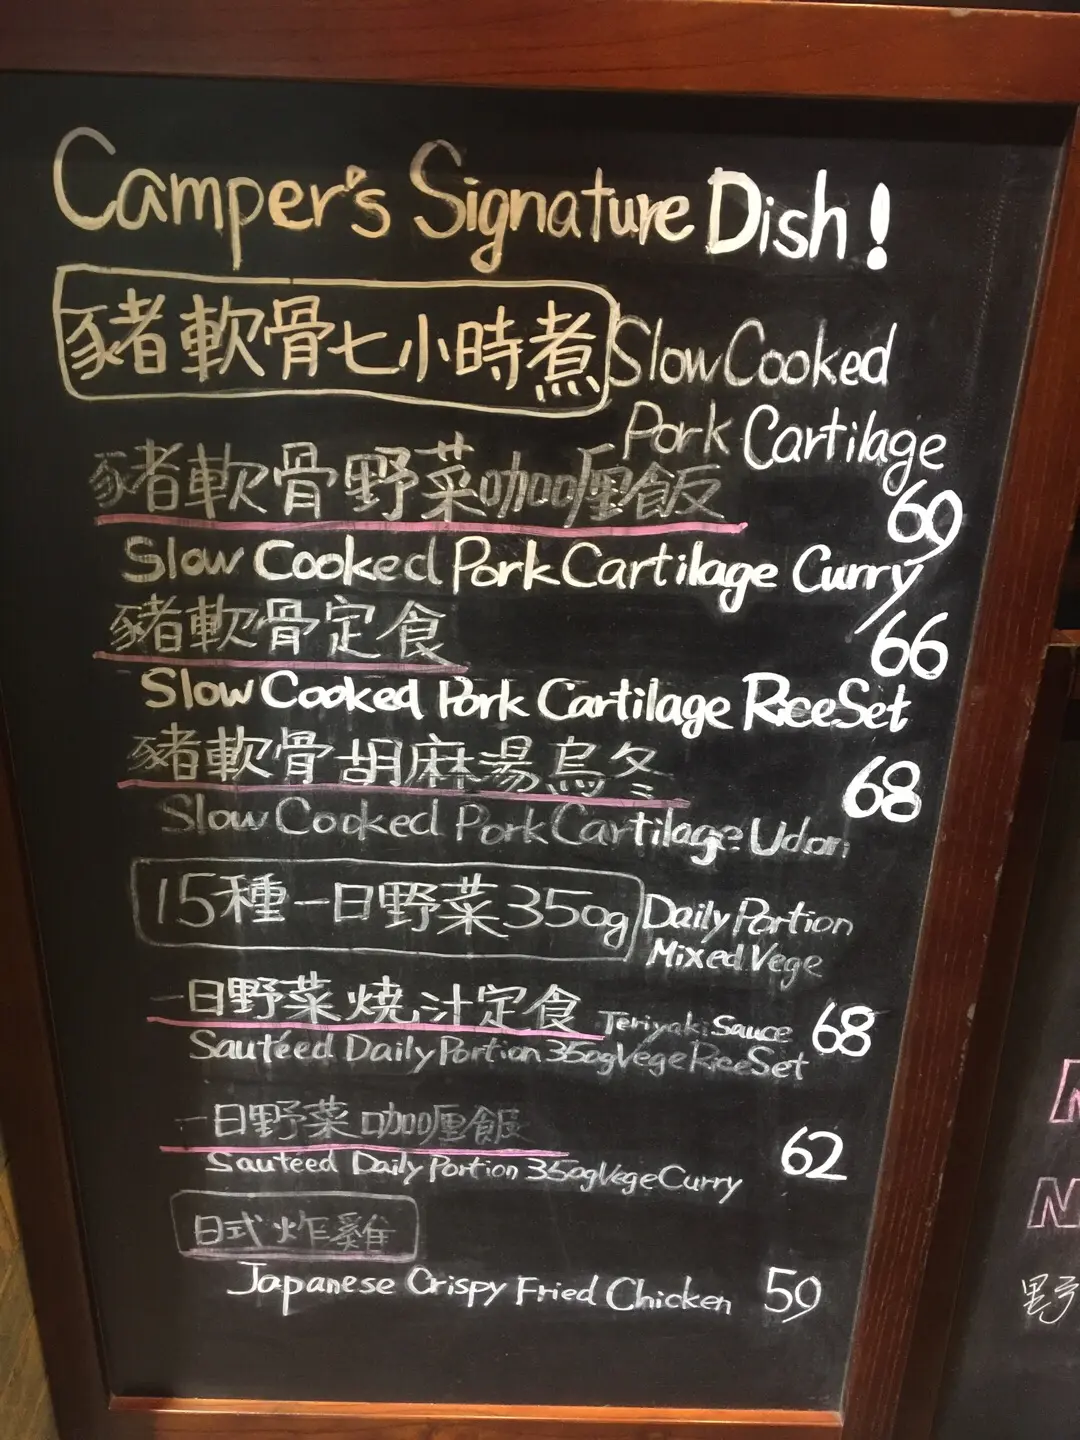 Camper's Signature Dish!
豬軟骨七小時煮 Slow Cooked
Pork Cartilage
豬軟骨野菜咖喱飯 69
Slow Cooked Pork Cartilage Curry
豬軟骨定食 66
Slow Cooked Pork Cartilage Rice Set
豬軟骨胡麻湯烏冬 68
Slow Cooked Pork Cartilage Udon
15種一日野菜350g Daily Portion
Mixed Vege
一日野菜燒汁定食 Teriyaki Sauce 68
Sautéed Daily Portion 350g Vege Rice Set
一日野菜咖喱飯 62
Sautéed Daily Portion 350g Vege Curry
日式炸雞
Japanese Crispy Fried Chicken 59
N
野